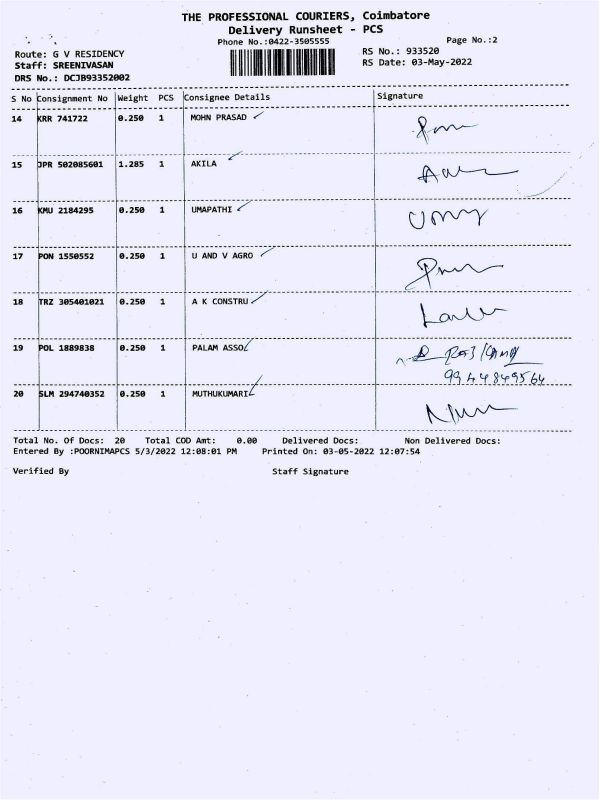 THE PROFESSIONAL COURIERS, Coimbatore
Delivery Runsheet - PCS
Phone No.:0422-3505555
Page No.:2
Route: G V RESIDENCY
RS No.: 933520
Staff: SREENIVASAN
RS Date: 03-May-2022
DRS No.: DCJB93352002
S No Consignment No Weight PCS Consignee Details Signature
14 KRR 741722 0.250 1 MOHN PRASAD
15 JPR 502085601 1.285 1 AKILA
16 KMU 2184295 0.250 1 UMAPATHI
17 PON 1550552 0.250 1 U AND V AGRO
18 TRZ 305401021 0.250 1 A K CONSTRU
19 POL 1889838 0.250 1 PALAM ASSO
9944849564
20 SLM 294740352 0.250 1 MUTHUKUMARI
Total No. Of Docs: 20 Total COD Amt: 0.00 Delivered Docs: Non Delivered Docs:
Entered By :POORNIMAPCS 5/3/2022 12:08:01 PM Printed On: 03-05-2022 12:07:54
Verified By Staff Signature